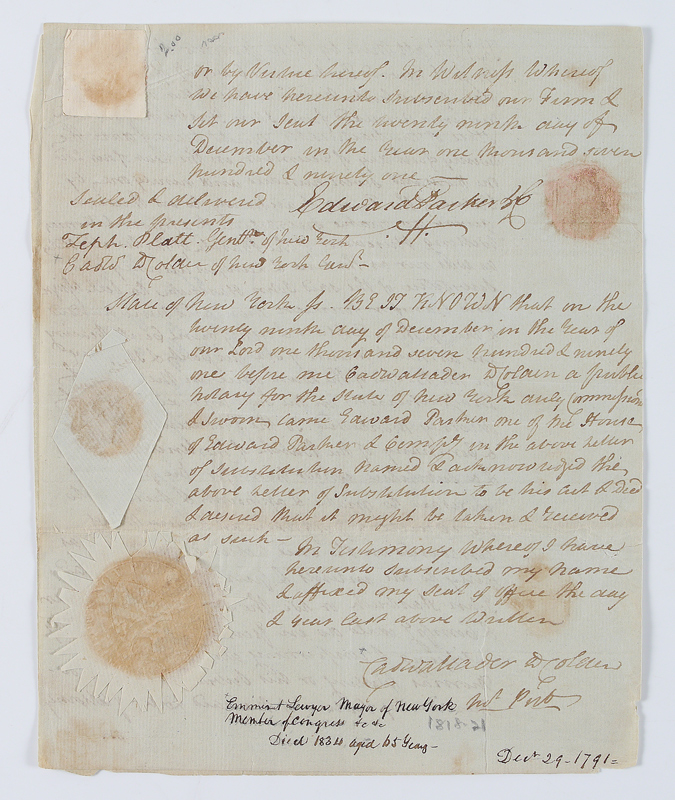 2.00
or by Virtue hereof. In Witness Whereof
we have hereunto Subscribed our Firm &
set our Seal the twenty ninth day of
December in the Year one thousand seven
hundred & ninety one —
Sealed & delivered
in the presents
Edward Parker & C
Zeph. Platt. Gentn. of New York
Cadw. D Colden of New York Esqr.
State of New York ss. BE IT KNOWN that on the
twenty ninth day of December in the Year of
our Lord one thousand seven hundred & ninety
one before me Cadwallader D Colden a public
notary for the State of New York duly Commission
& Sworn came Edward Parker one of the House
of Edward Parker & Compy. in the above Letter
of Substitution Named & acknowledged the
above Letter of Substitution to be his Act & Deed
& desired that it might be taken & received
as such —
In Testimony Whereof I have
hereunto Subscribed my Name
& affixed my Seal of Office the day
& Year last above Written
Cadwallader D Colden
Not. Pub
Eminent Lawyer Mayor of New York
Member of Congress &c &c
Died 1834 aged 65 Years —
Decr 29 - 1791 =